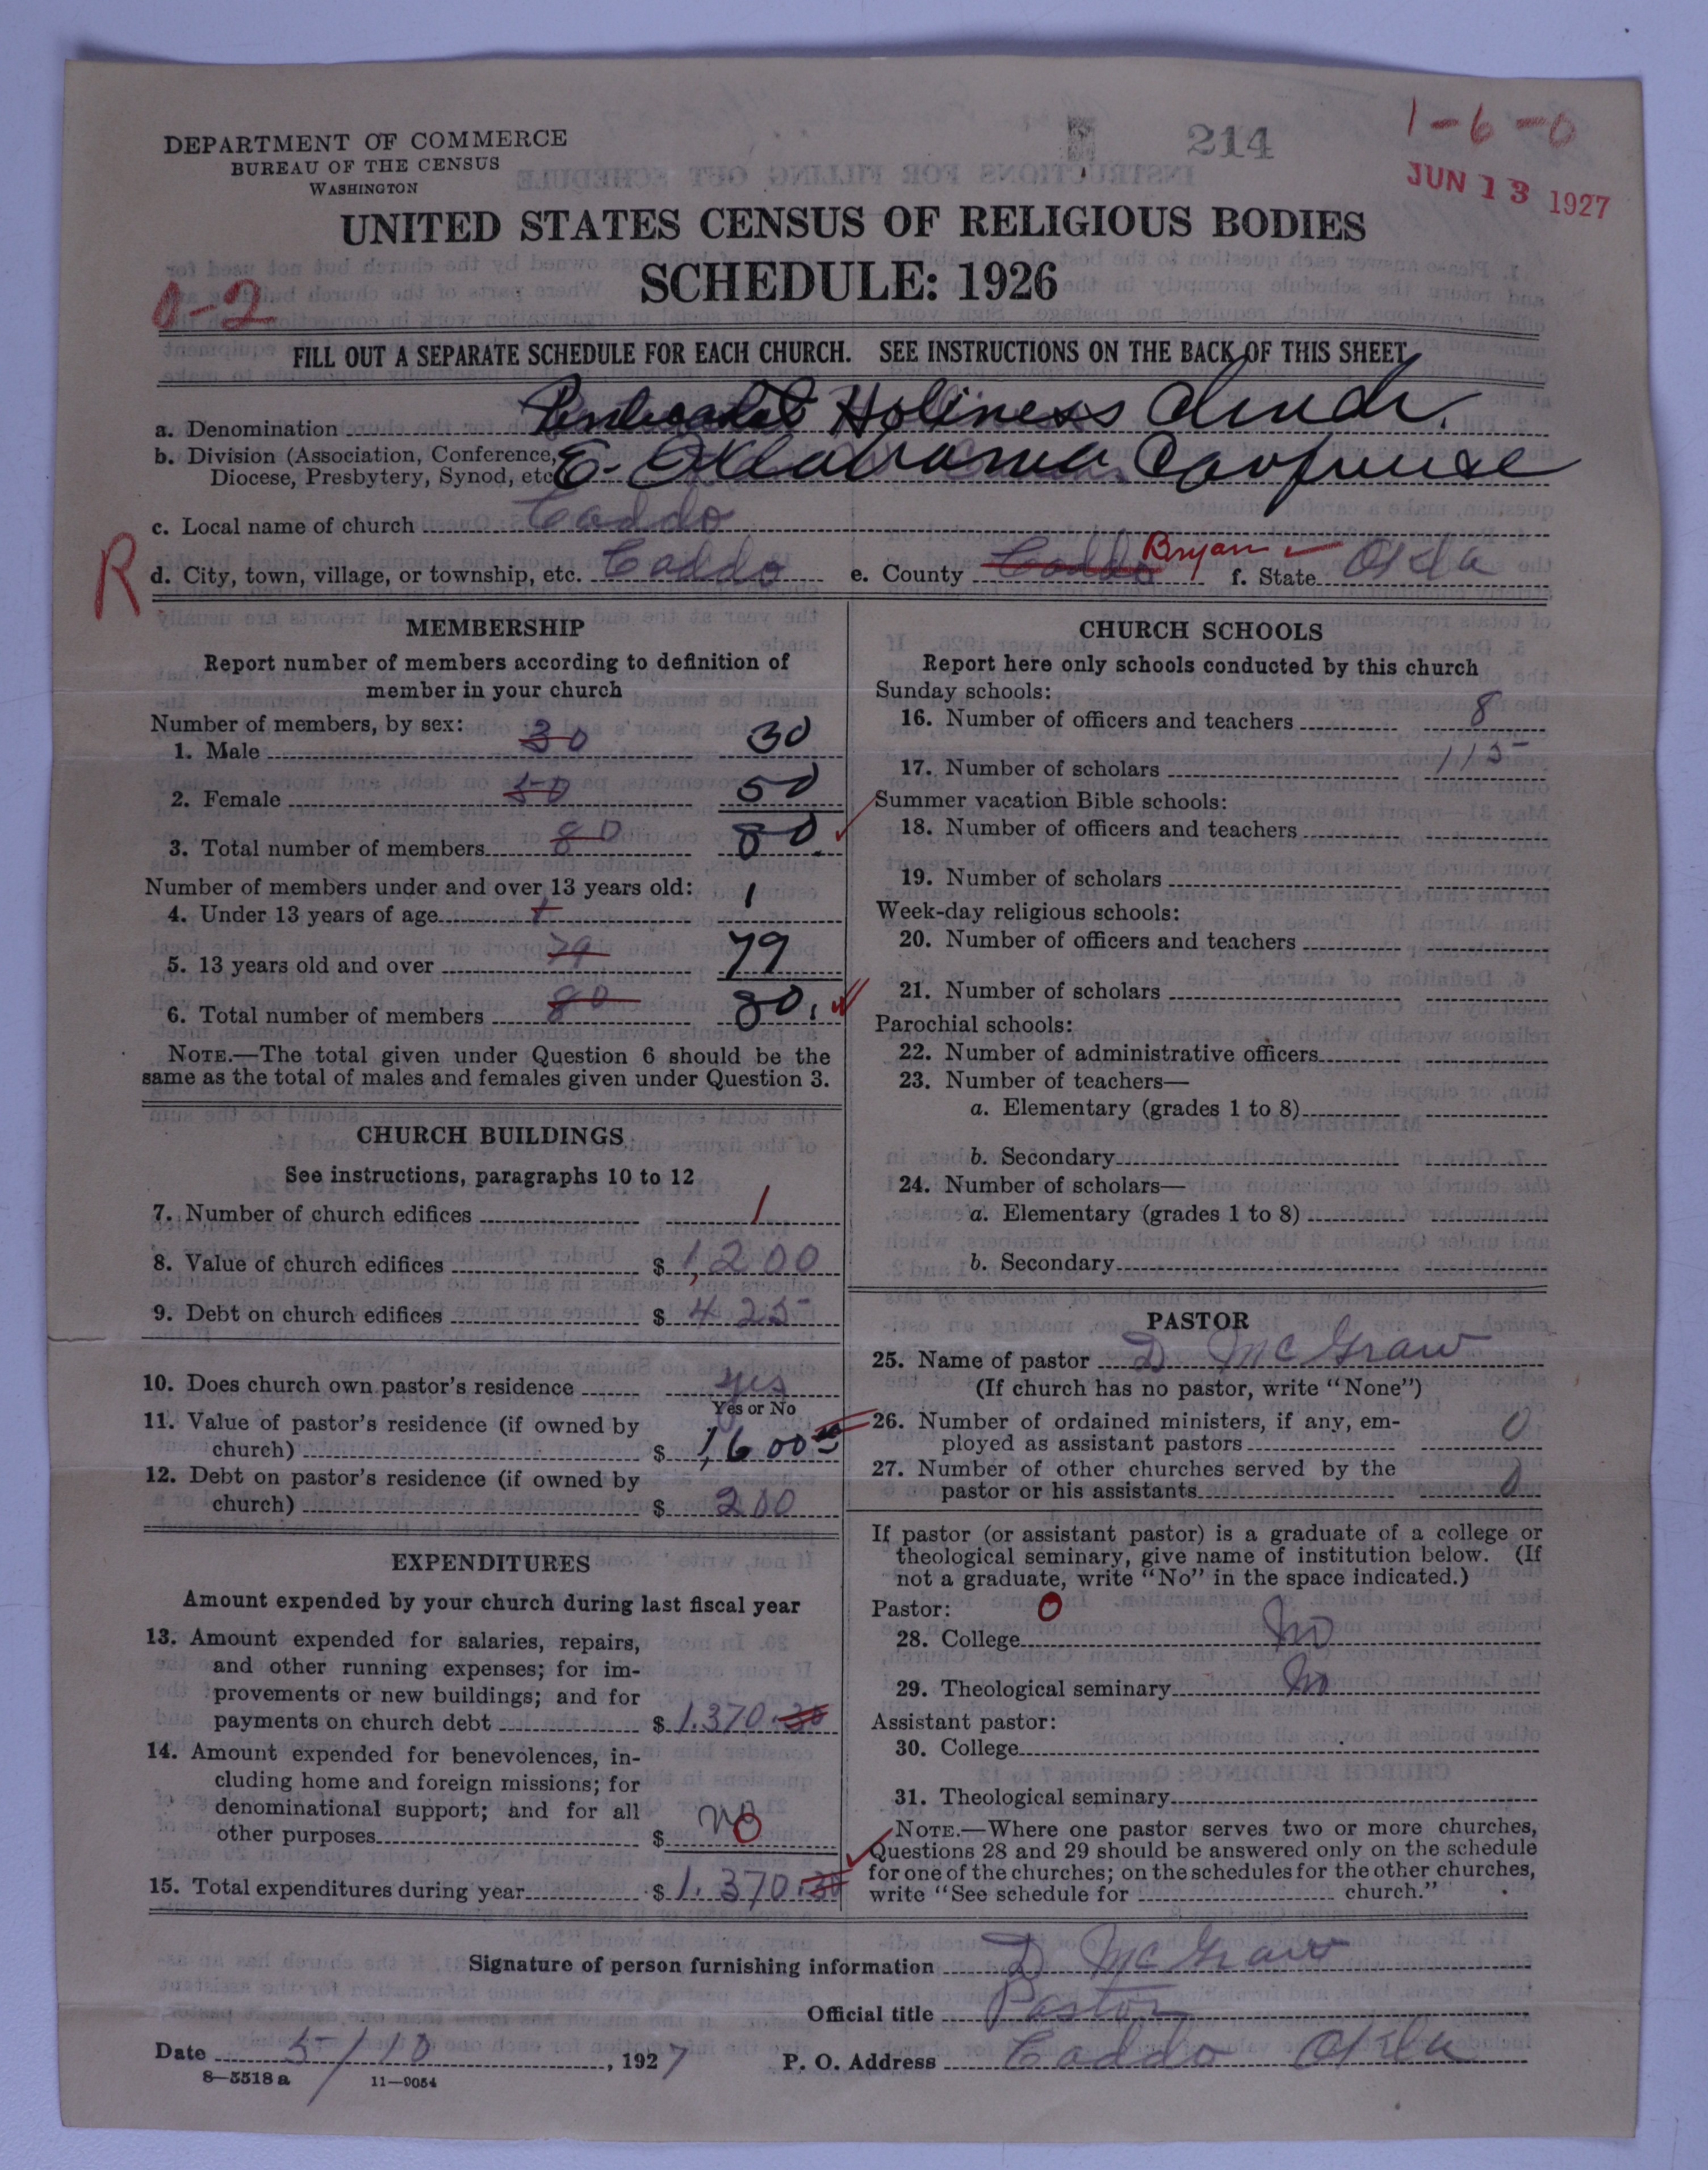 DEPARTMENT OF COMMERCE
BUREAU OF THE CENSUS
WASHINGTON
214
1-6-0
JUN 13 1927
UNITED STATES CENSUS OF RELIGIOUS BODIES
SCHEDULE: 1926
0-2
FILL OUT A SEPARATE SCHEDULE FOR EACH CHURCH. SEE INSTRUCTIONS ON THE BACK OF THIS SHEET
a. Denomination Pentecostal Holiness Church.
b. Division (Association, Conference,
Diocese, Presbytery, Synod, etc E. Oklahoma
c. Local name of church Caddo
R
d. City, town, village, or township, etc. Caddo e. County Caddo Bryan f. State Okla
MEMBERSHIP
Report number of members according to definition of
member in your church
Number of members, by sex:
1. Male 30 30
2. Female 50 50
3. Total number of members 80 80.
Number of members under and over 13 years old:
4. Under 13 years of age 1 1
5. 13 years old and over 79 79
6. Total number of members 80 80.
NOTE.—The total given under Question 6 should be the
same as the total of males and females given under Question 3.
CHURCH BUILDINGS
See instructions, paragraphs 10 to 12
7. Number of church edifices 1
8. Value of church edifices $ 1,200
9. Debt on church edifices $ 425
10. Does church own pastor's residence yes
Yes or No
11. Value of pastor's residence (if owned by
church) $ 1,600
12. Debt on pastor's residence (if owned by
church) $ 200
EXPENDITURES
Amount expended by your church during last fiscal year
13. Amount expended for salaries, repairs,
and other running expenses; for im-
provements or new buildings; and for
payments on church debt $ 1.370.30
14. Amount expended for benevolences, in-
cluding home and foreign missions; for
denominational support; and for all
other purposes $ no
15. Total expenditures during year $ 1.370.30
CHURCH SCHOOLS
Report here only schools conducted by this church
Sunday schools:
16. Number of officers and teachers 8
17. Number of scholars 115
Summer vacation Bible schools:
18. Number of officers and teachers
19. Number of scholars
Week-day religious schools:
20. Number of officers and teachers
21. Number of scholars
Parochial schools:
22. Number of administrative officers
23. Number of teachers—
a. Elementary (grades 1 to 8)
b. Secondary
24. Number of scholars—
a. Elementary (grades 1 to 8)
b. Secondary
PASTOR
25. Name of pastor D McGraw
(If church has no pastor, write "None")
26. Number of ordained ministers, if any, em-
ployed as assistant pastors 0
27. Number of other churches served by the
pastor or his assistants 0
If pastor (or assistant pastor) is a graduate of a college or
theological seminary, give name of institution below. (If
not a graduate, write "No" in the space indicated.)
Pastor: 0
28. College No
29. Theological seminary No
Assistant pastor:
30. College
31. Theological seminary
NOTE.—Where one pastor serves two or more churches,
Questions 28 and 29 should be answered only on the schedule
for one of the churches; on the schedules for the other churches,
write "See schedule for church."
Signature of person furnishing information D McGraw
Official title Pastor
Date 5/10, 1927 P. O. Address Caddo Okla
8—5518a 11—9054